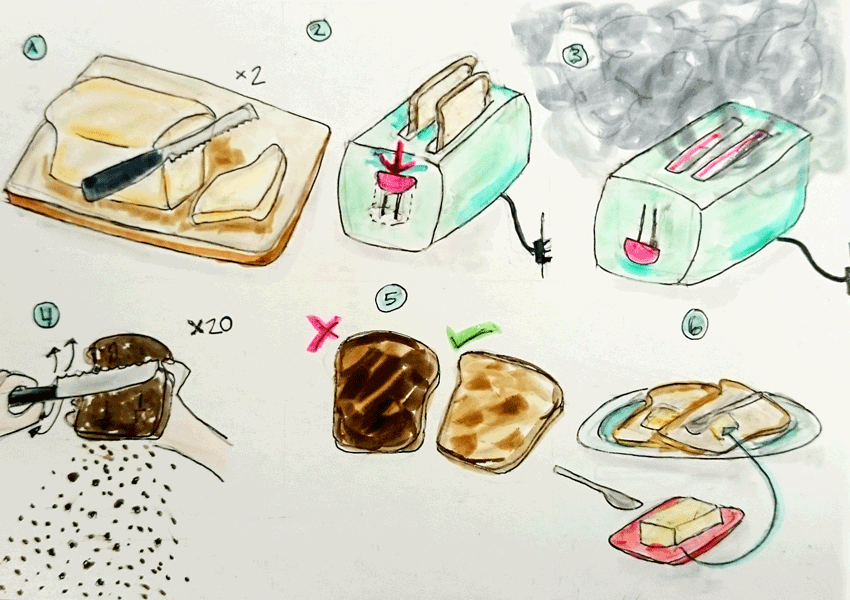 1
x2
2
3
4
x20
5
6